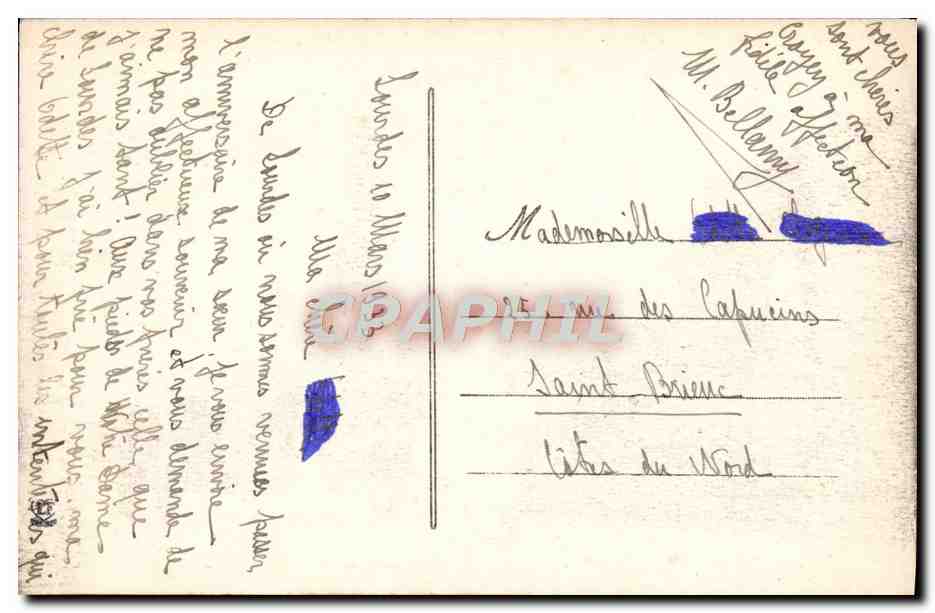 Lourdes 10 Mars 1933
Ma chère
De Lourdes où nous sommes venues passer
l'anniversaire de ma sœur, je vous envoie
mon affectueux souvenir et vous demande de
ne pas oublier dans vos prières celle que
j'aimais tant ! Aux pieds de Notre Dame
de Lourdes j'ai bien prié pour vous, ma
chère Odette et pour toutes les intentions qui
vous
sont chères
Croyez à ma
fidèle affection
M. Bellamy
Mademoiselle
25, rue des Capucins
Saint-Brieuc
Côtes du Nord
CPAPHIL